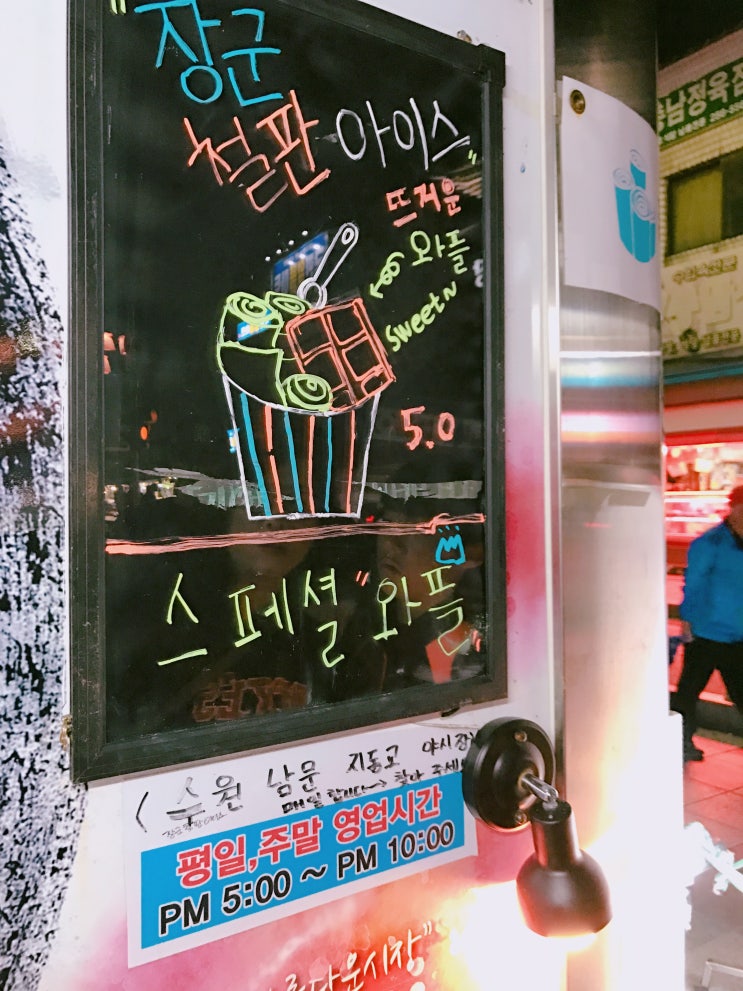 "장군
철판 아이스"
뜨거운
와플
sweet~
5.0
스페셜 "와플"
<수원 남문 지동교 야시장>
매일 합니다~> 찾아 주세
평일,주말 영업시간
PM 5:00 ~ PM 10:00
다운시장"
남정육점